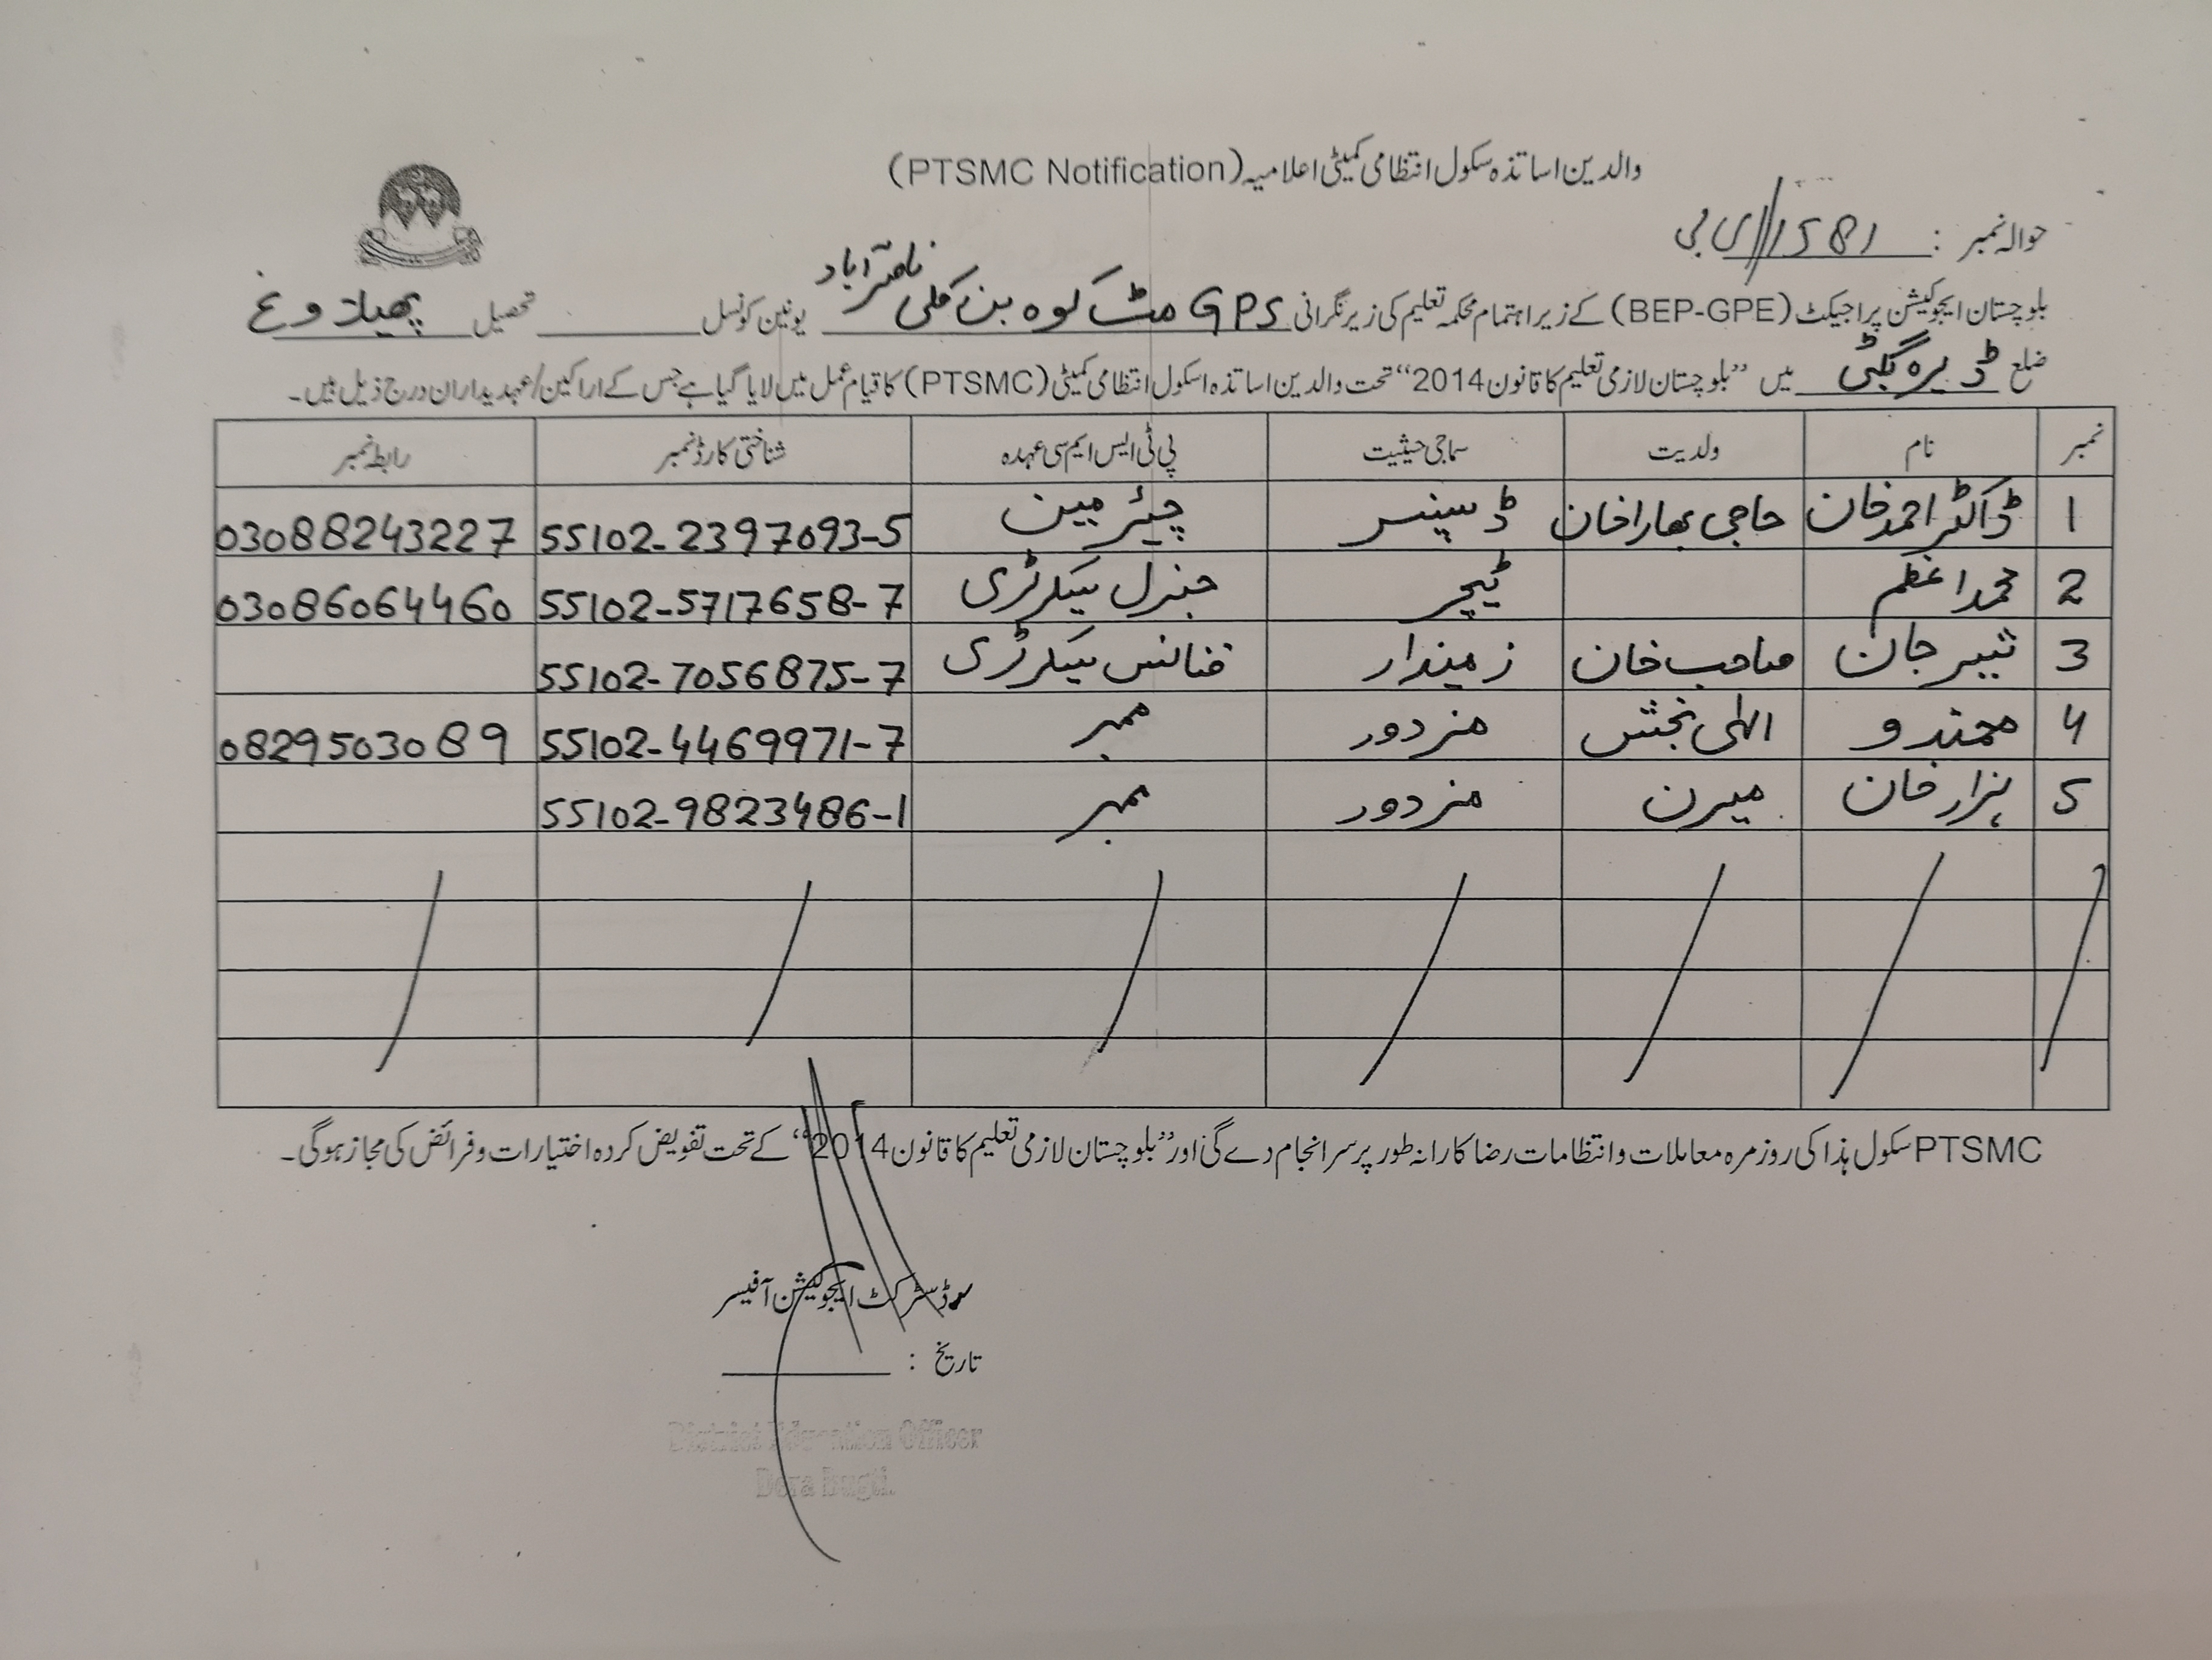 والدین اساتذہ سکول انتظامی کمیٹی اعلامیہ (PTSMC Notification)
حوالہ نمبر : 1581//ای بی
بلوچستان ایجوکیشن پراجیکٹ (BEP-GPE) کے زیر اہتمام محکمہ تعلیم کی زیر نگرانی GPS مٹ کوہ بن کلی ناصر آباد یونین کونسل تحصیل پھیلاوغ
ضلع ڈیرہ بگٹی میں "بلوچستان لازمی تعلیم کا قانون 2014" تحت والدین اساتذہ اسکول انتظامی کمیٹی (PTSMC) کا قیام عمل میں لایا گیا ہے جس کے اراکین/عہدیداران درج ذیل ہیں۔
نمبر نام ولدیت سماجی حیثیت پی ٹی ایس ایم سی عہدہ شناختی کارڈ نمبر رابطہ نمبر
1 ڈاکٹر احمد خان حاجی بھارا خان ڈسپنسر چیئرمین 55102-2397093-5 03088243227
2 محمد اعظم ٹیچر جنرل سیکرٹری 55102-5717658-7 03086064460
3 شیر جان صاحب خان زمیندار فنانس سیکرٹری 55102-7056875-7
4 محمندو الٰہی بخش مزدور ممبر 55102-4469971-7 0829503089
5 ہزار خان میرن مزدور ممبر 55102-9823486-1
PTSMC سکول ہذا کی روزمرہ معاملات و انتظامات رضا کارانہ طور پر سرانجام دے گی اور "بلوچستان لازمی تعلیم کا قانون 2014" کے تحت تفویض کردہ اختیارات و فرائض کی مجاز ہوگی۔
ڈسٹرکٹ ایجوکیشن آفیسر
تاریخ :
District Education Officer
Dera Bugti.